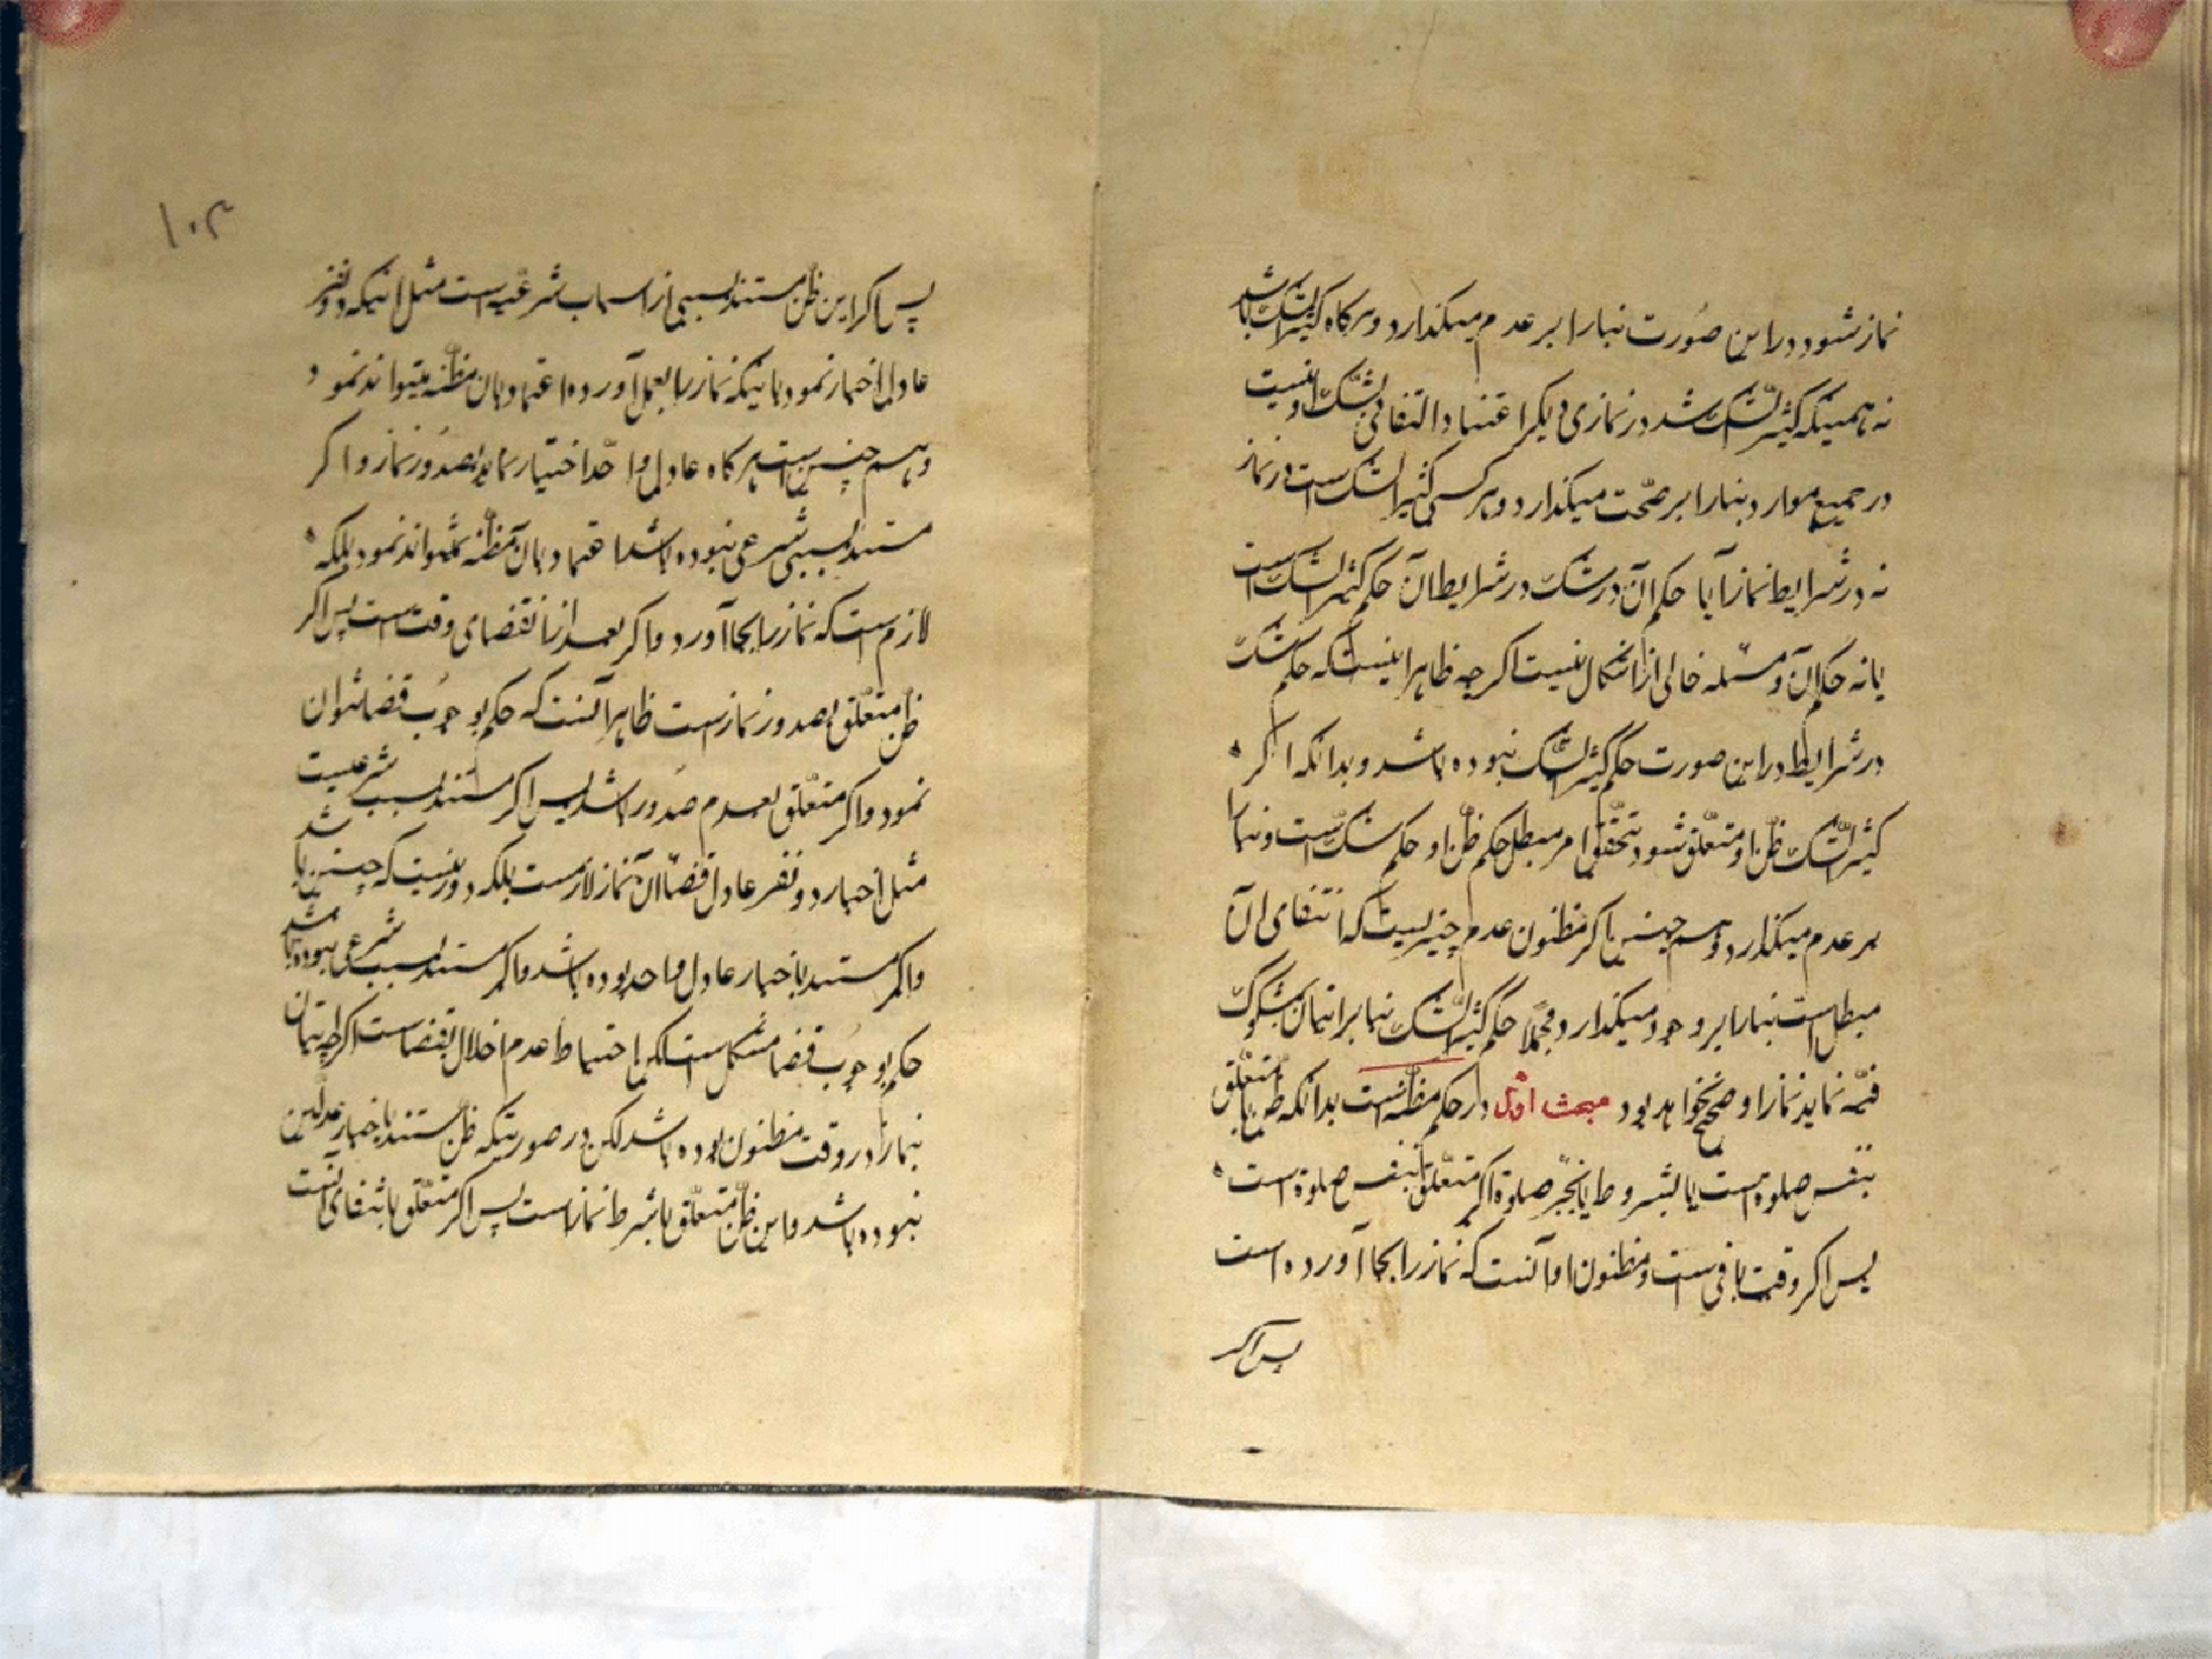 نماز شود در این صورت بنا را بر عدم میکذارد و هرکاه کثیر الشک باشد
نه همینکه کثیر الشک شد در نمازی دیکر اعتنا و التفاتی بشک او نیست
در جمیع موارد بنا را بر صحّت میکذارد و هر کسی کثیر الشک است در نماز
نه در شرایط نماز آیا حکم آن در شک در شرایط آن حکم کثیر الشک است
یا نه حکم آن و مسئله خالی از اشکال نیست اکرچه ظاهر اینست که حکم شک
در شرایط در این صورت حکم کثیر الشک نبوده باشد و بدانکه اکر
کثیر الشّک ظنّ او متعلّق شود بتحقّق امر مبطل حکم ظنّ او حکم شکّ است و بنا را
بر عدم میکذارد و هم چنین اکر مظنون عدم چیزیست که انتفای آن
مبطل است بنا را بر وجود میکذارد و مجملاً حکم کثیر الشّک بنا بر اتیان مشکوک
فیه نماید نماز او صحیح نخواهد بود مبحث اوّل در حکم مظنّه است بدانکه ظن یا متعلّق
بنفس صلوة است یا بشروط یا بجزء صلوة اکر متعلّق بنفس صلوة است
پس اکر وقت باقی است و مظنون او آنست که نماز را بجا آورده است
پس اکر
۱۰۳
پس اکر این ظنّ مستند بسببی از اسباب شرعیّه است مثل اینکه دو نفر
عادل اخبار نمود باینکه نماز را بعمل آورده اعتماد بان مظنّه میتواند نمود
و هم چنین است هرکاه عادل واحد اختیار نماید بصدور نماز و اکر
مستند بسببی شرعی نبوده باشد اعتماد بان مظنّه نمیتواند نمود بلکه
لازم است که نماز را بجا آورد و اکر بعد از انقضای وقت است پس اکر
ظنّ متعلّق بصدور نماز است ظاهر آنست که حکم بوجوب قضا نتوان
نمود و اکر متعلّق بعدم صدور باشد پس اکر مستند بسبب شرعیست
مثل اخبار دو نفر عادل قضاء آن نماز لازمست بلکه دور نیست که چنین باشد
و اکر مستند باخبار عادل واحد بوده باشد و اکر مستند بسبب شرعی نبوده باشد
حکم بوجوب قضا مشکل است لکن احتیاط عدم اخلال بقضاست اکرچه اتیان
نماز در وقت مظنون بوده باشد لکن در صورتیکه ظنّ مستند باخبار عدلین
نبوده باشد و این ظنّ متعلّق باشرط نماز است پس اکر متعلّق بانتفای آنست